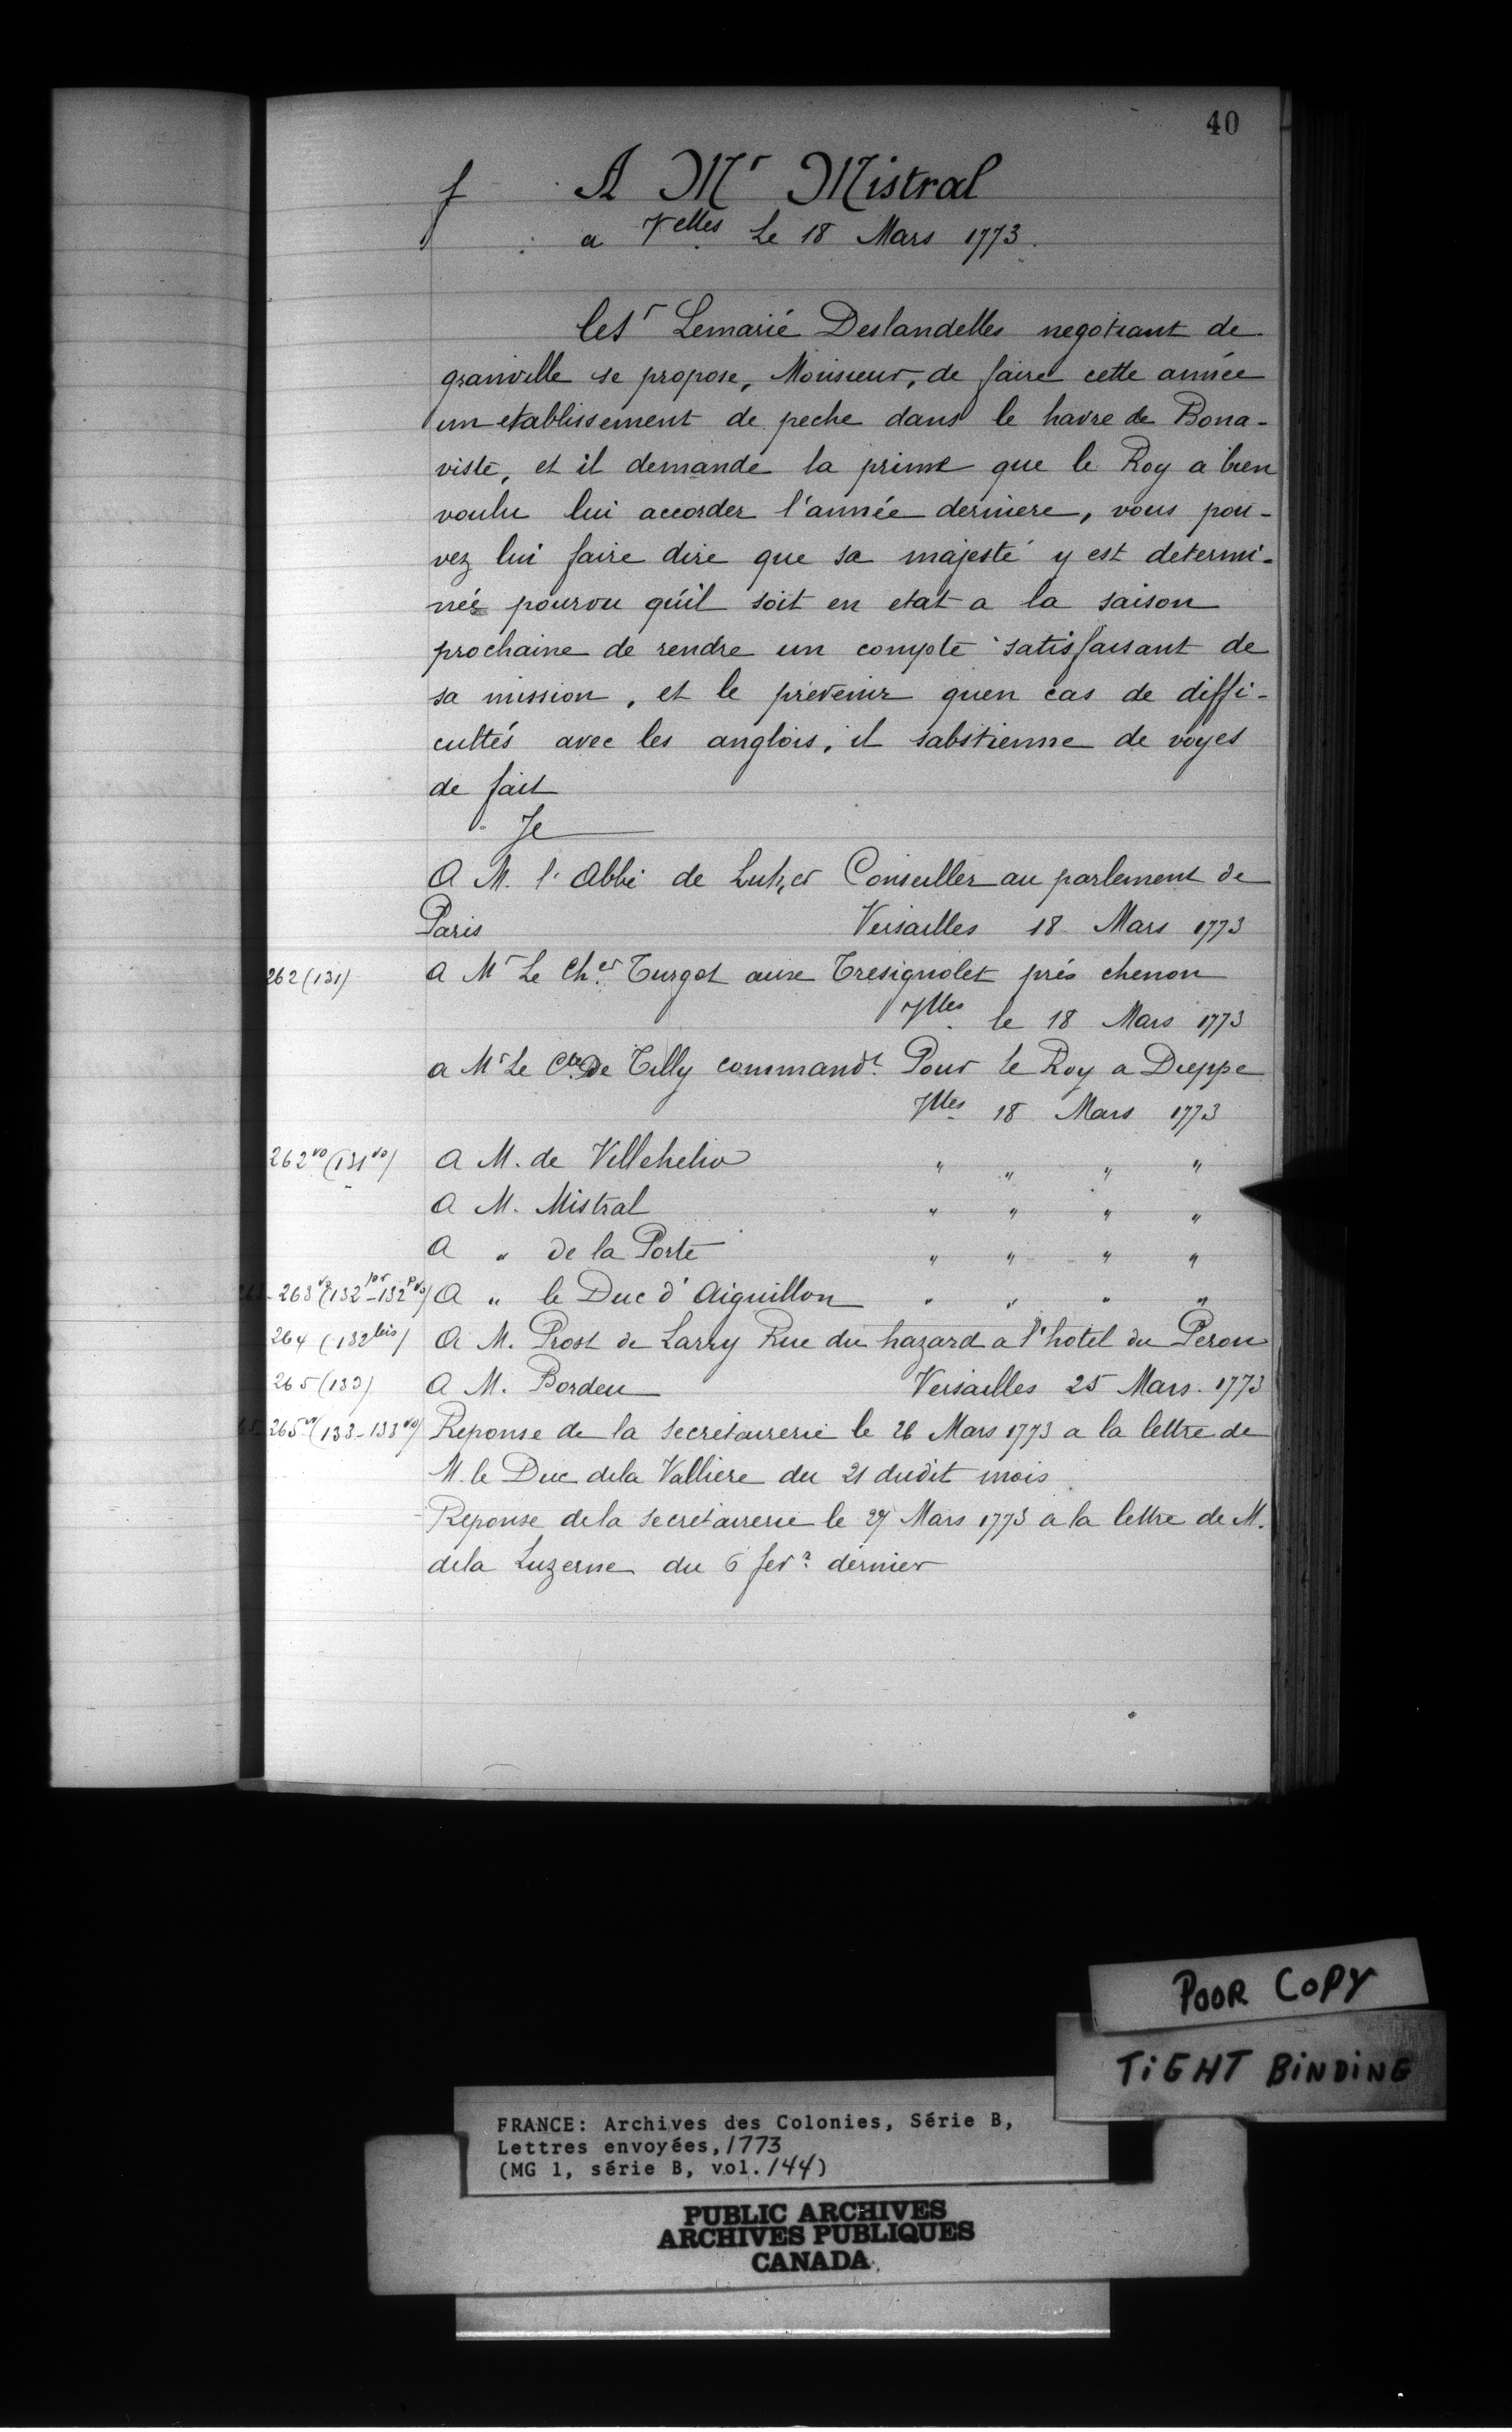 40
f A Mr Mistral
a Velles Le 18 Mars 1773.
leSr Lemarié Deslandelles negotiant de
granville se propose, Monsieur, de faire cette année
un etablissement de peche dans le havre de Bona-
viste, et il demande la prime que le Roy a bien
voulu lui accorder l'année derniere, vous pou-
vez lui faire dire que sa majesté y est determi-
née pourvu qu'il soit en etat a la saison
prochaine de rendre un compte satisfaisant de
sa mission, et le prevenir quen cas de diffi-
cultés avec les anglois, il sabstienne de voyes
de fait
Je
A M. l'Abbé de Conseiller au parlement de
Paris Versailles 18 Mars 1773
262 (131) a Mr Le Cher Turgot Tresignolet prés chenon
Vlles le 18 Mars 1773
a Mr Le Cte De Tilly commandt Pour le Roy a Dieppe
Vlles 18 Mars 1773
262 vo (131 vo) A M. de Villehelio " " " "
A M. Mistral " " " "
A " de la Porte " " " "
263-263 vo (132 pr-132 pr vo) A " le Duc d'Aiguillon " " " "
264 (132 bis) A M. Prost de Larry Rue du hazard a l'hotel du Perou
265 (133) A M. Bordeu Versailles 25 Mars 1773
265-265 vo (133-133 vo) Reponse de la secretairerie le 26 Mars 1773 a la lettre de
M. le Duc dela Valliere du 21 dudit mois
Reponse dela secretairerie le 27 Mars 1773 a la lettre de M.
dela Luzerne du 6 fevr dernier
POOR COPY
TIGHT BINDING
FRANCE: Archives des Colonies, Série B,
Lettres envoyées, 1773
(MG 1, série B, vol. 144)
PUBLIC ARCHIVES
ARCHIVES PUBLIQUES
CANADA